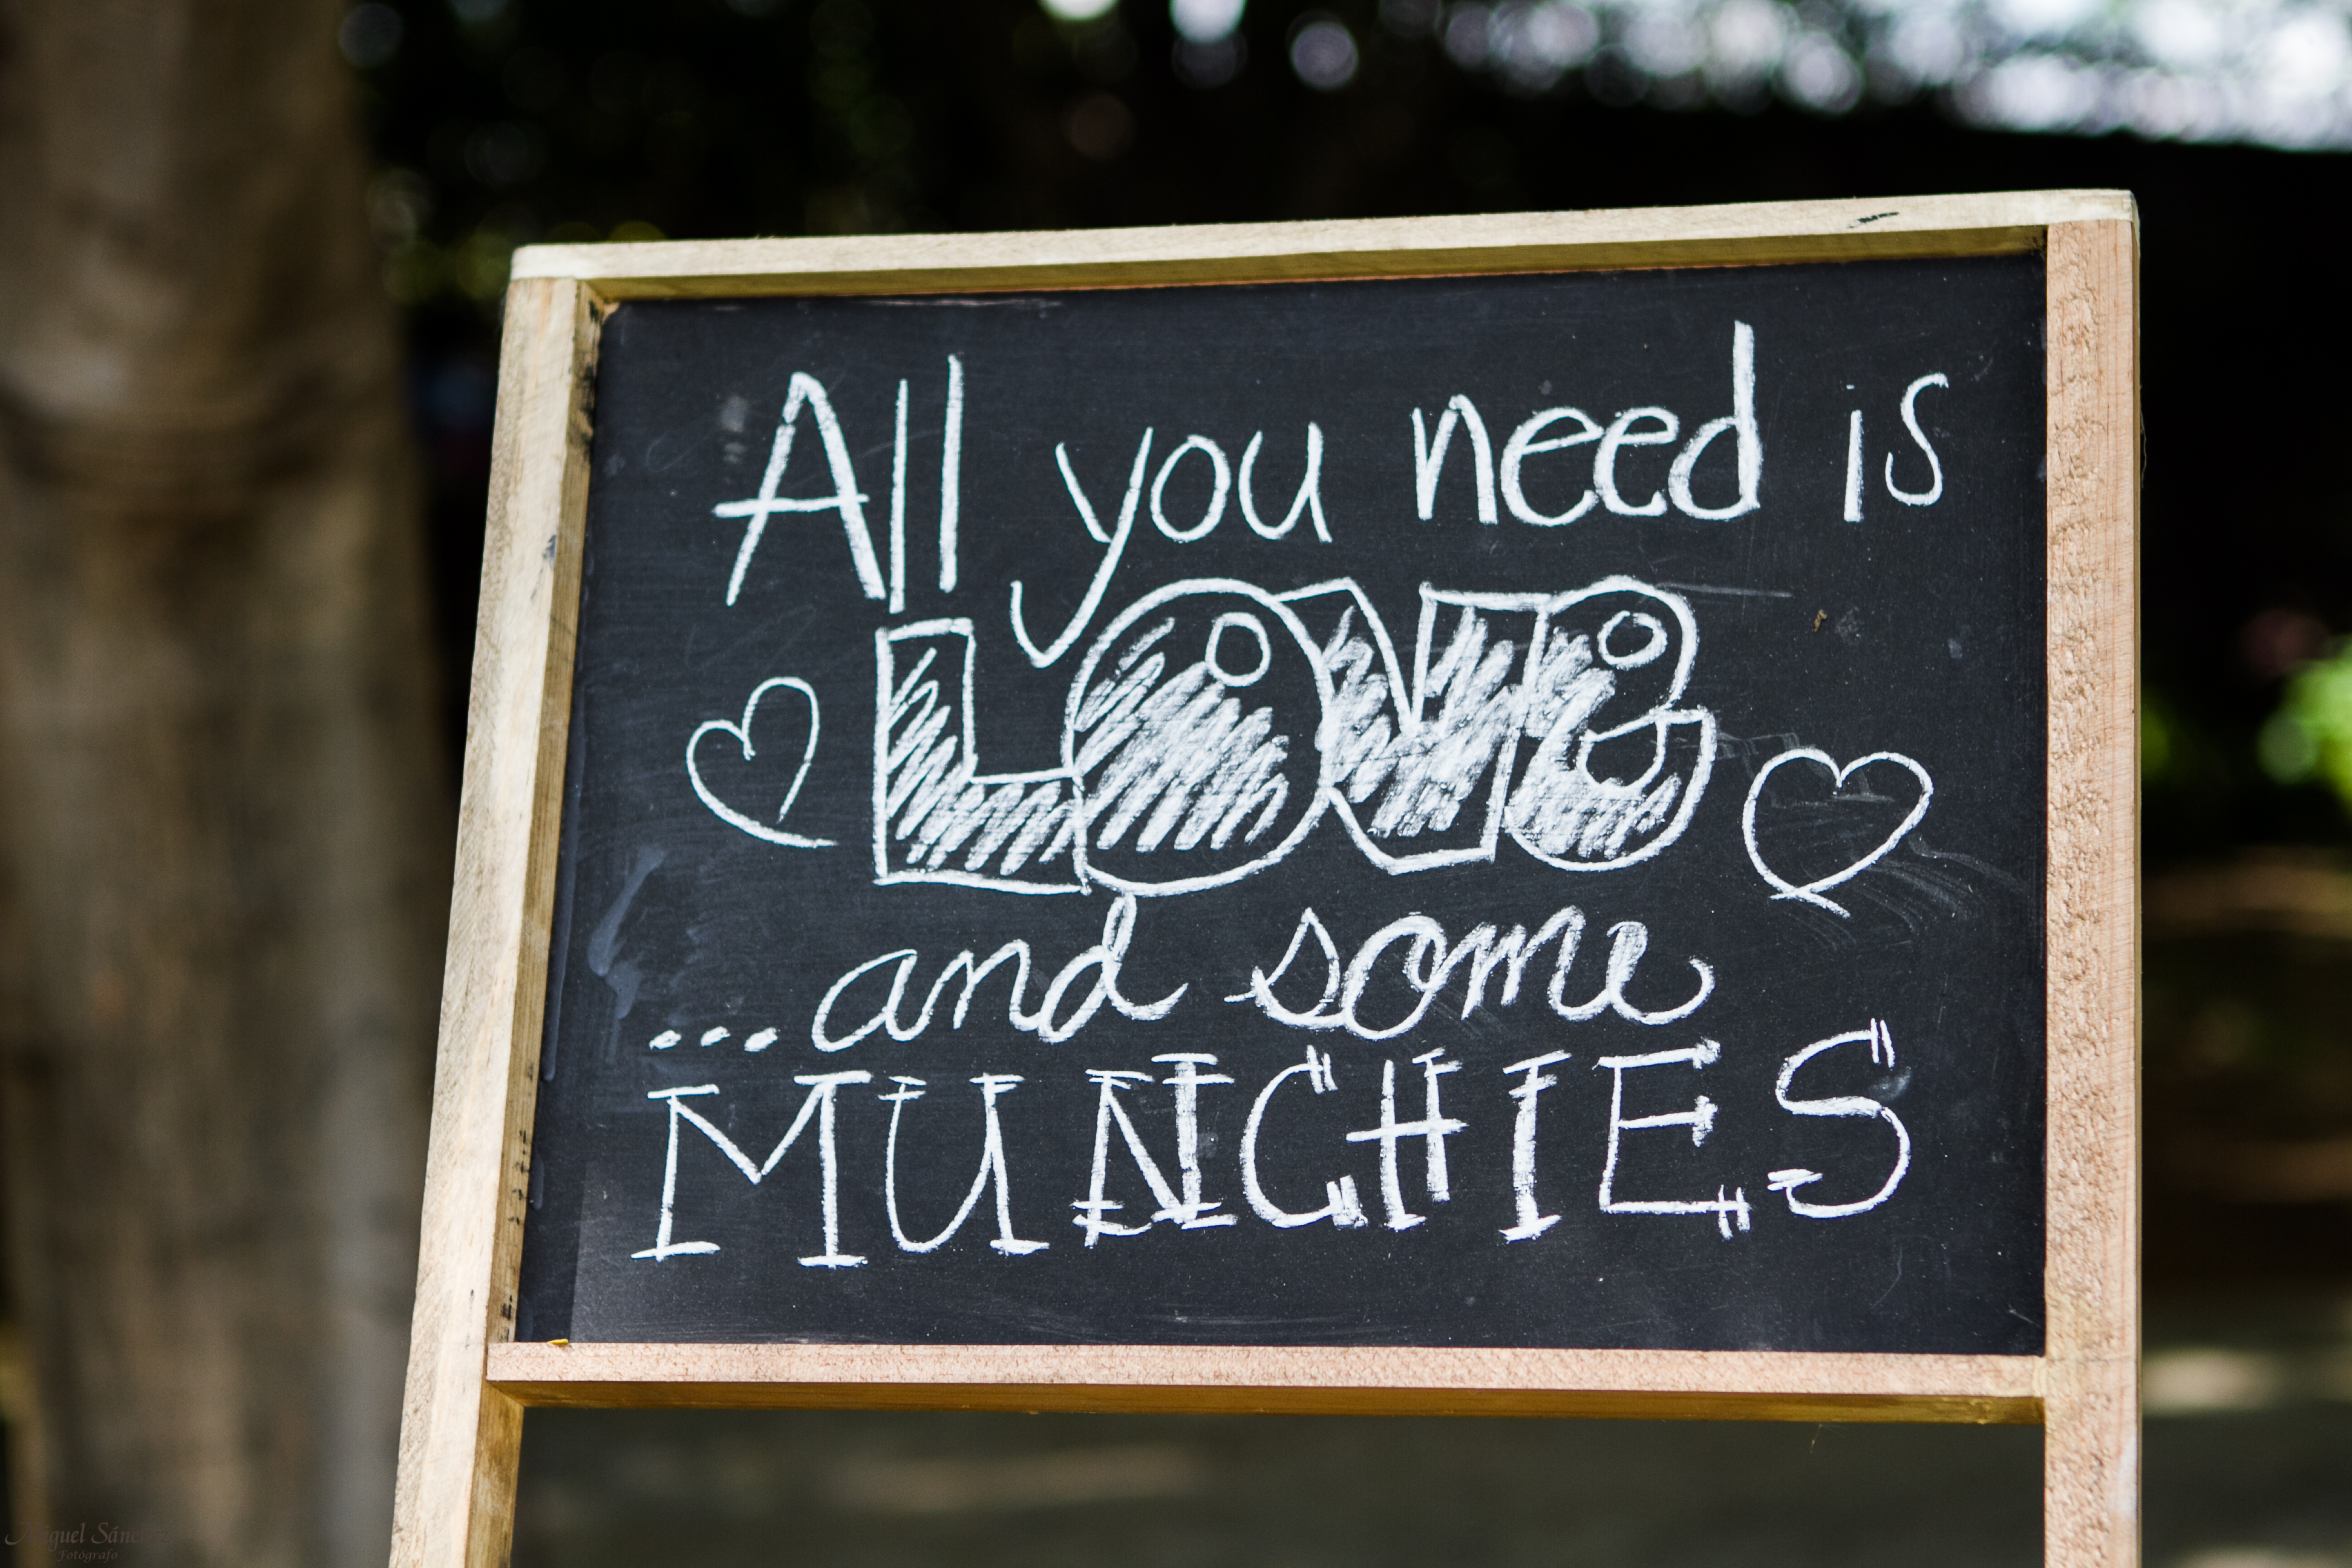 All you need is
LOVE
...and some
MUNCHIES
Miguel Sánchez
Fotógrafo